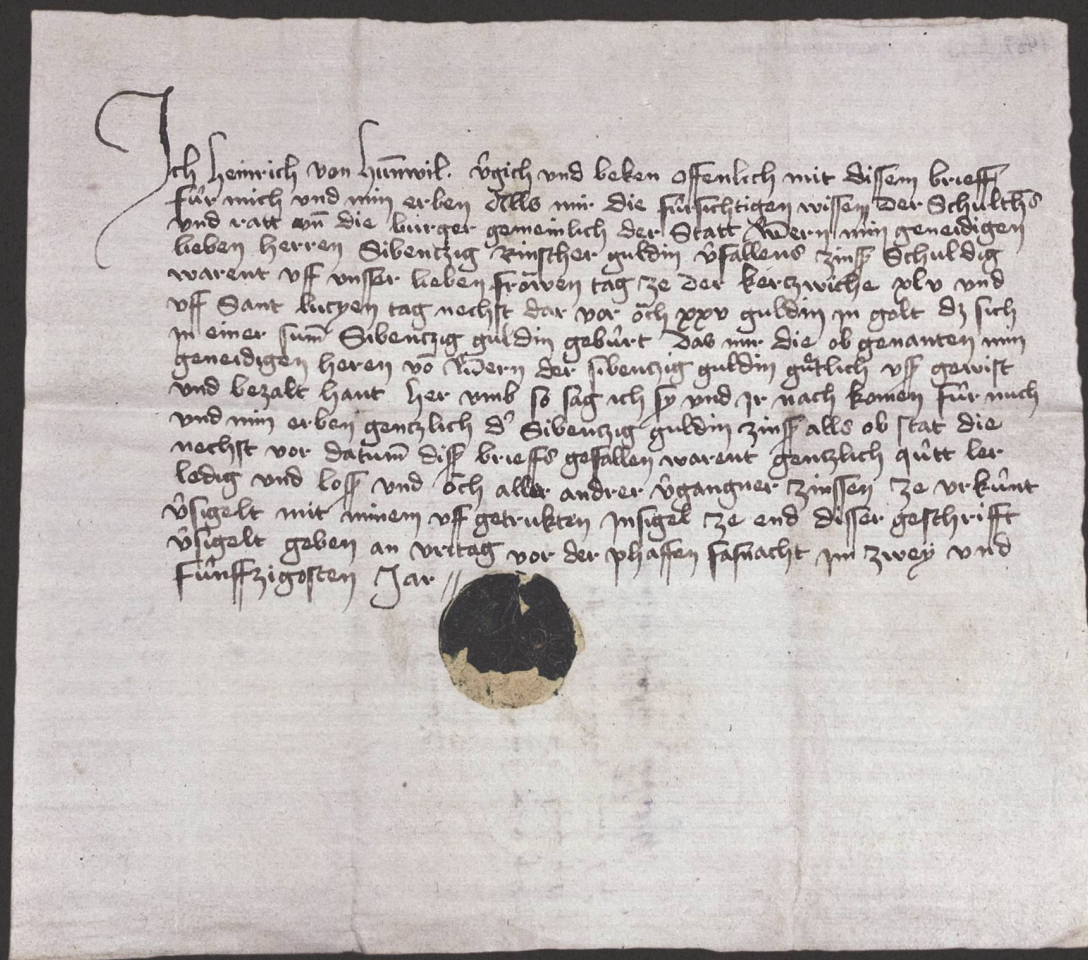 Ich Heinrich von Hunwil. v̂gich vnd beken offenlich mit dissem brieff
für mich vnd min erben Alls mir die fürsichtigen wissen der Schulths
vnd ratt vn̄ die burger gemeinlich der Statt Bern min geneidigen
lieben herren Sibentzig Rinscher guldin v̂fallens zinß Schuldig
warent vff vnsser lieben frowen tag ze der kerczwiche xlv vnd
vff Sant lucyen tag nechst dar vor och xxv guldin in golt dz sich
in einer sum̄ Sibentzig guldin gebürt Das mir die ob genanten min
geneidigen heren vo̅ Bern der sibentzig guldin gůtlich vss gewist
vnd bezalt hant her vmb so sag ich sy vnd ir nach komen für mich
vnd min erben gentzlich d' Sibentzig guldin zinß alls ob stat die
nechst vor datum̄ diß brieffs gefallen warent gentzlich qůtt ler
ledig vnd loß vnd och aller andrer v̂gangner zinssen ze vrkünt
v̂sigelt mit minem vff getrukten insigel ze end disser geschrifft
v̂sigelt geben an vritag vor der phaffen fasnacht im zwey vnd
fünffzigosten Jar //